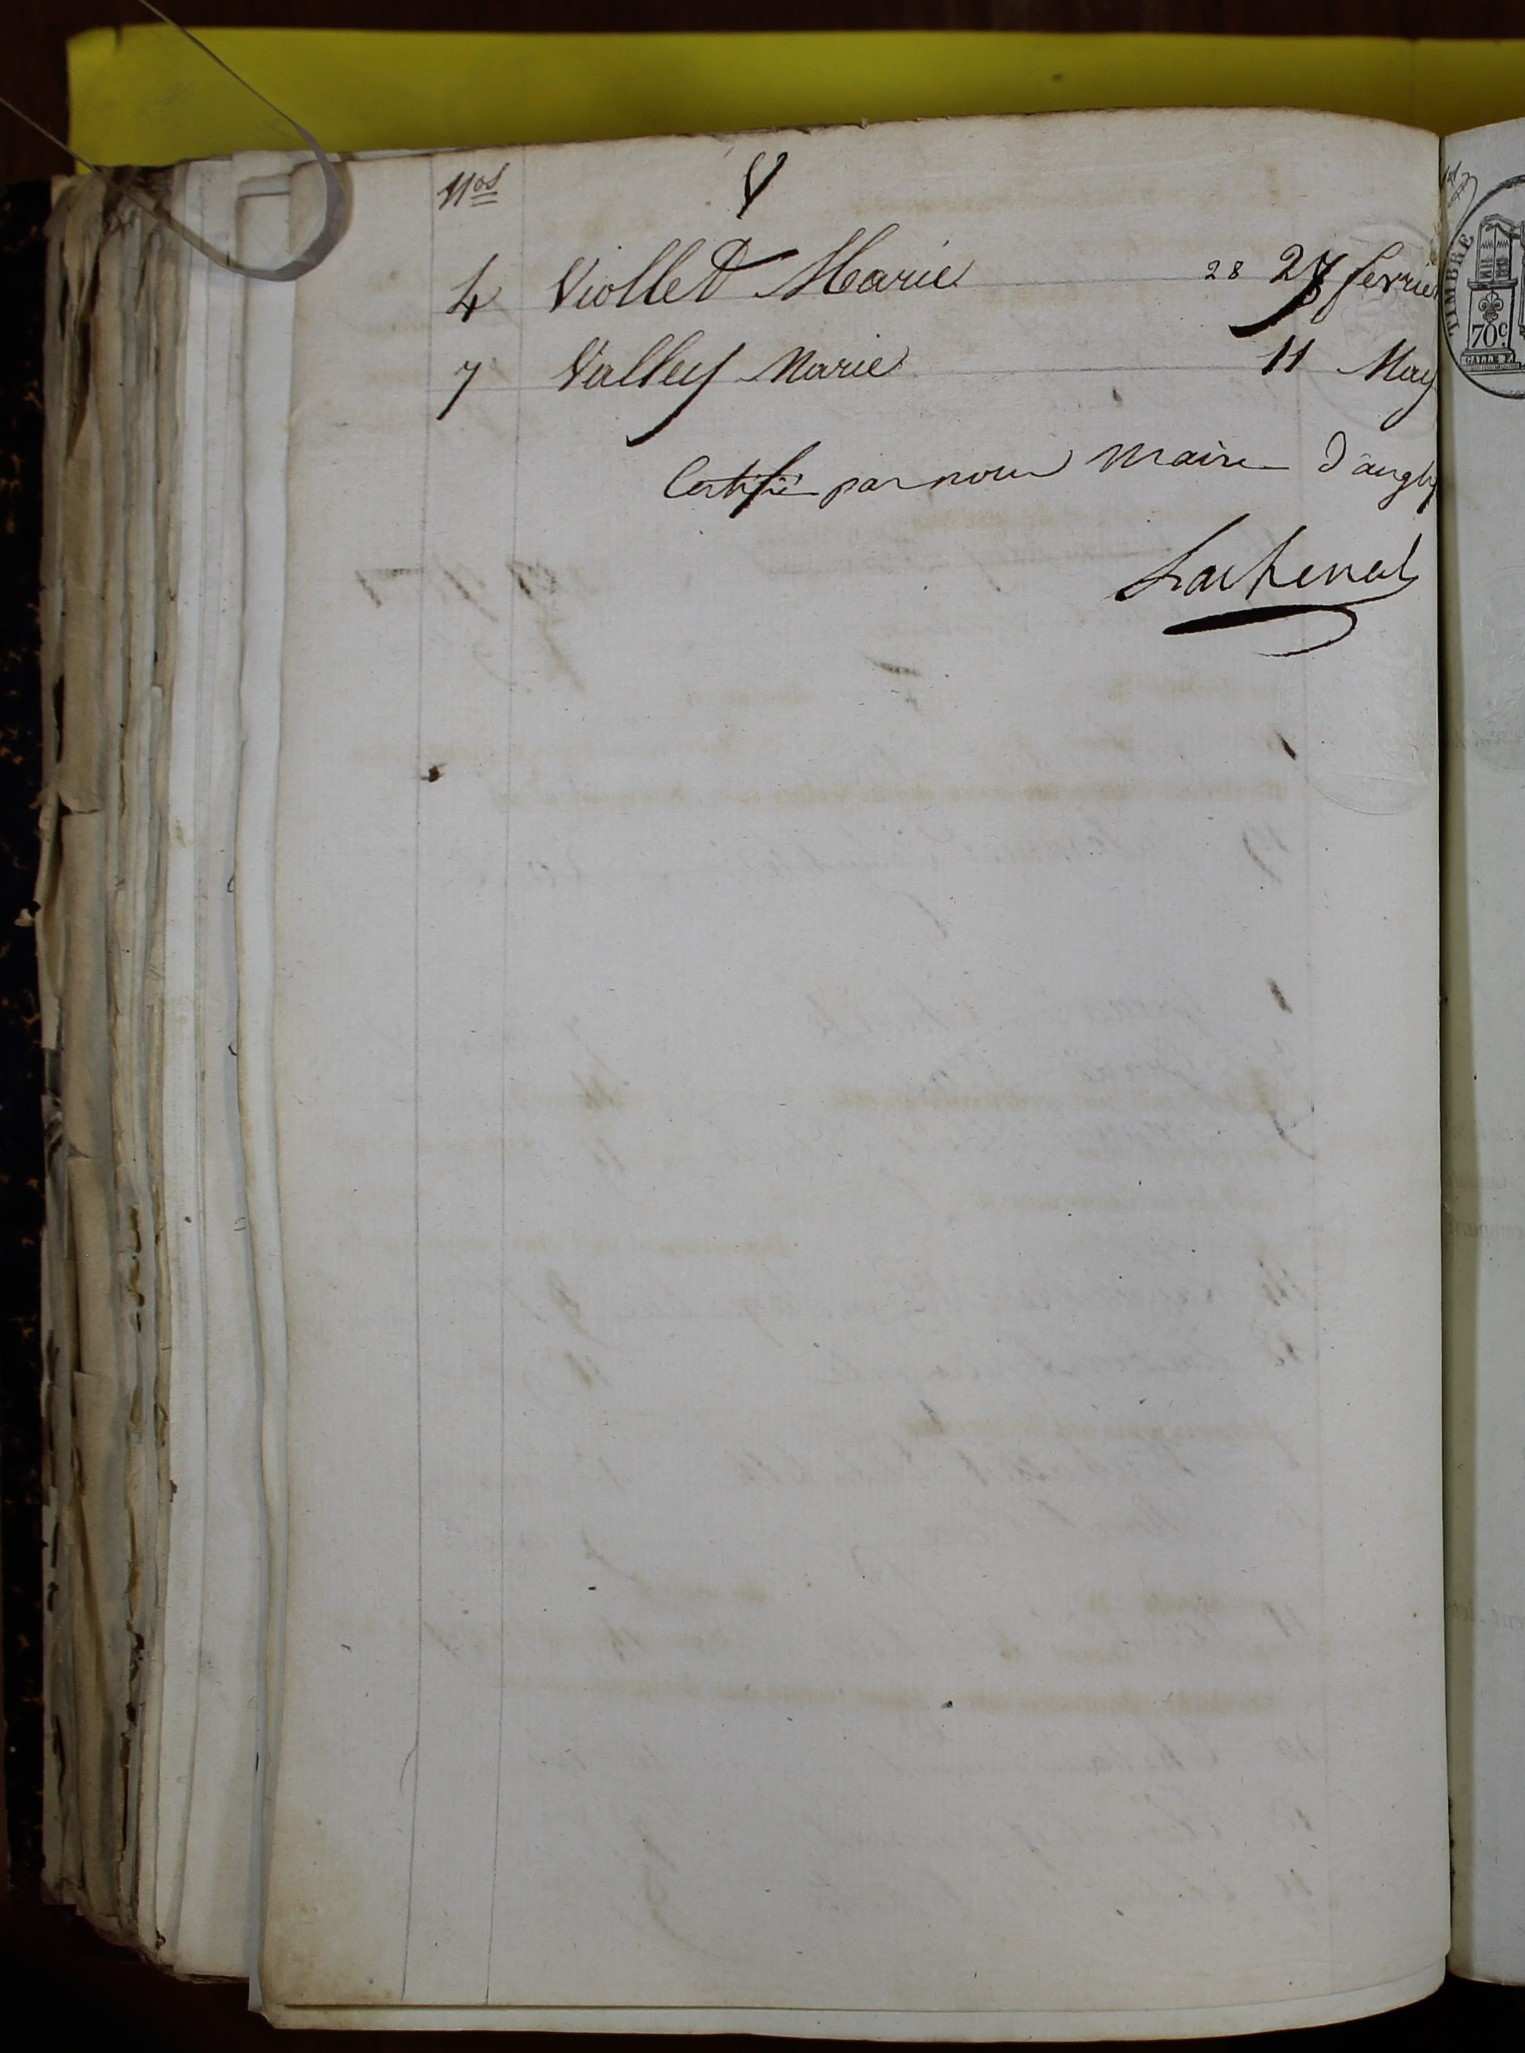 Nos V
4 Viollet Marie 28 27 fevrier
7 Valley Marie 11 May
Certifié par nous Maire d'angl
Lachenal
TIMBRE
70 c.